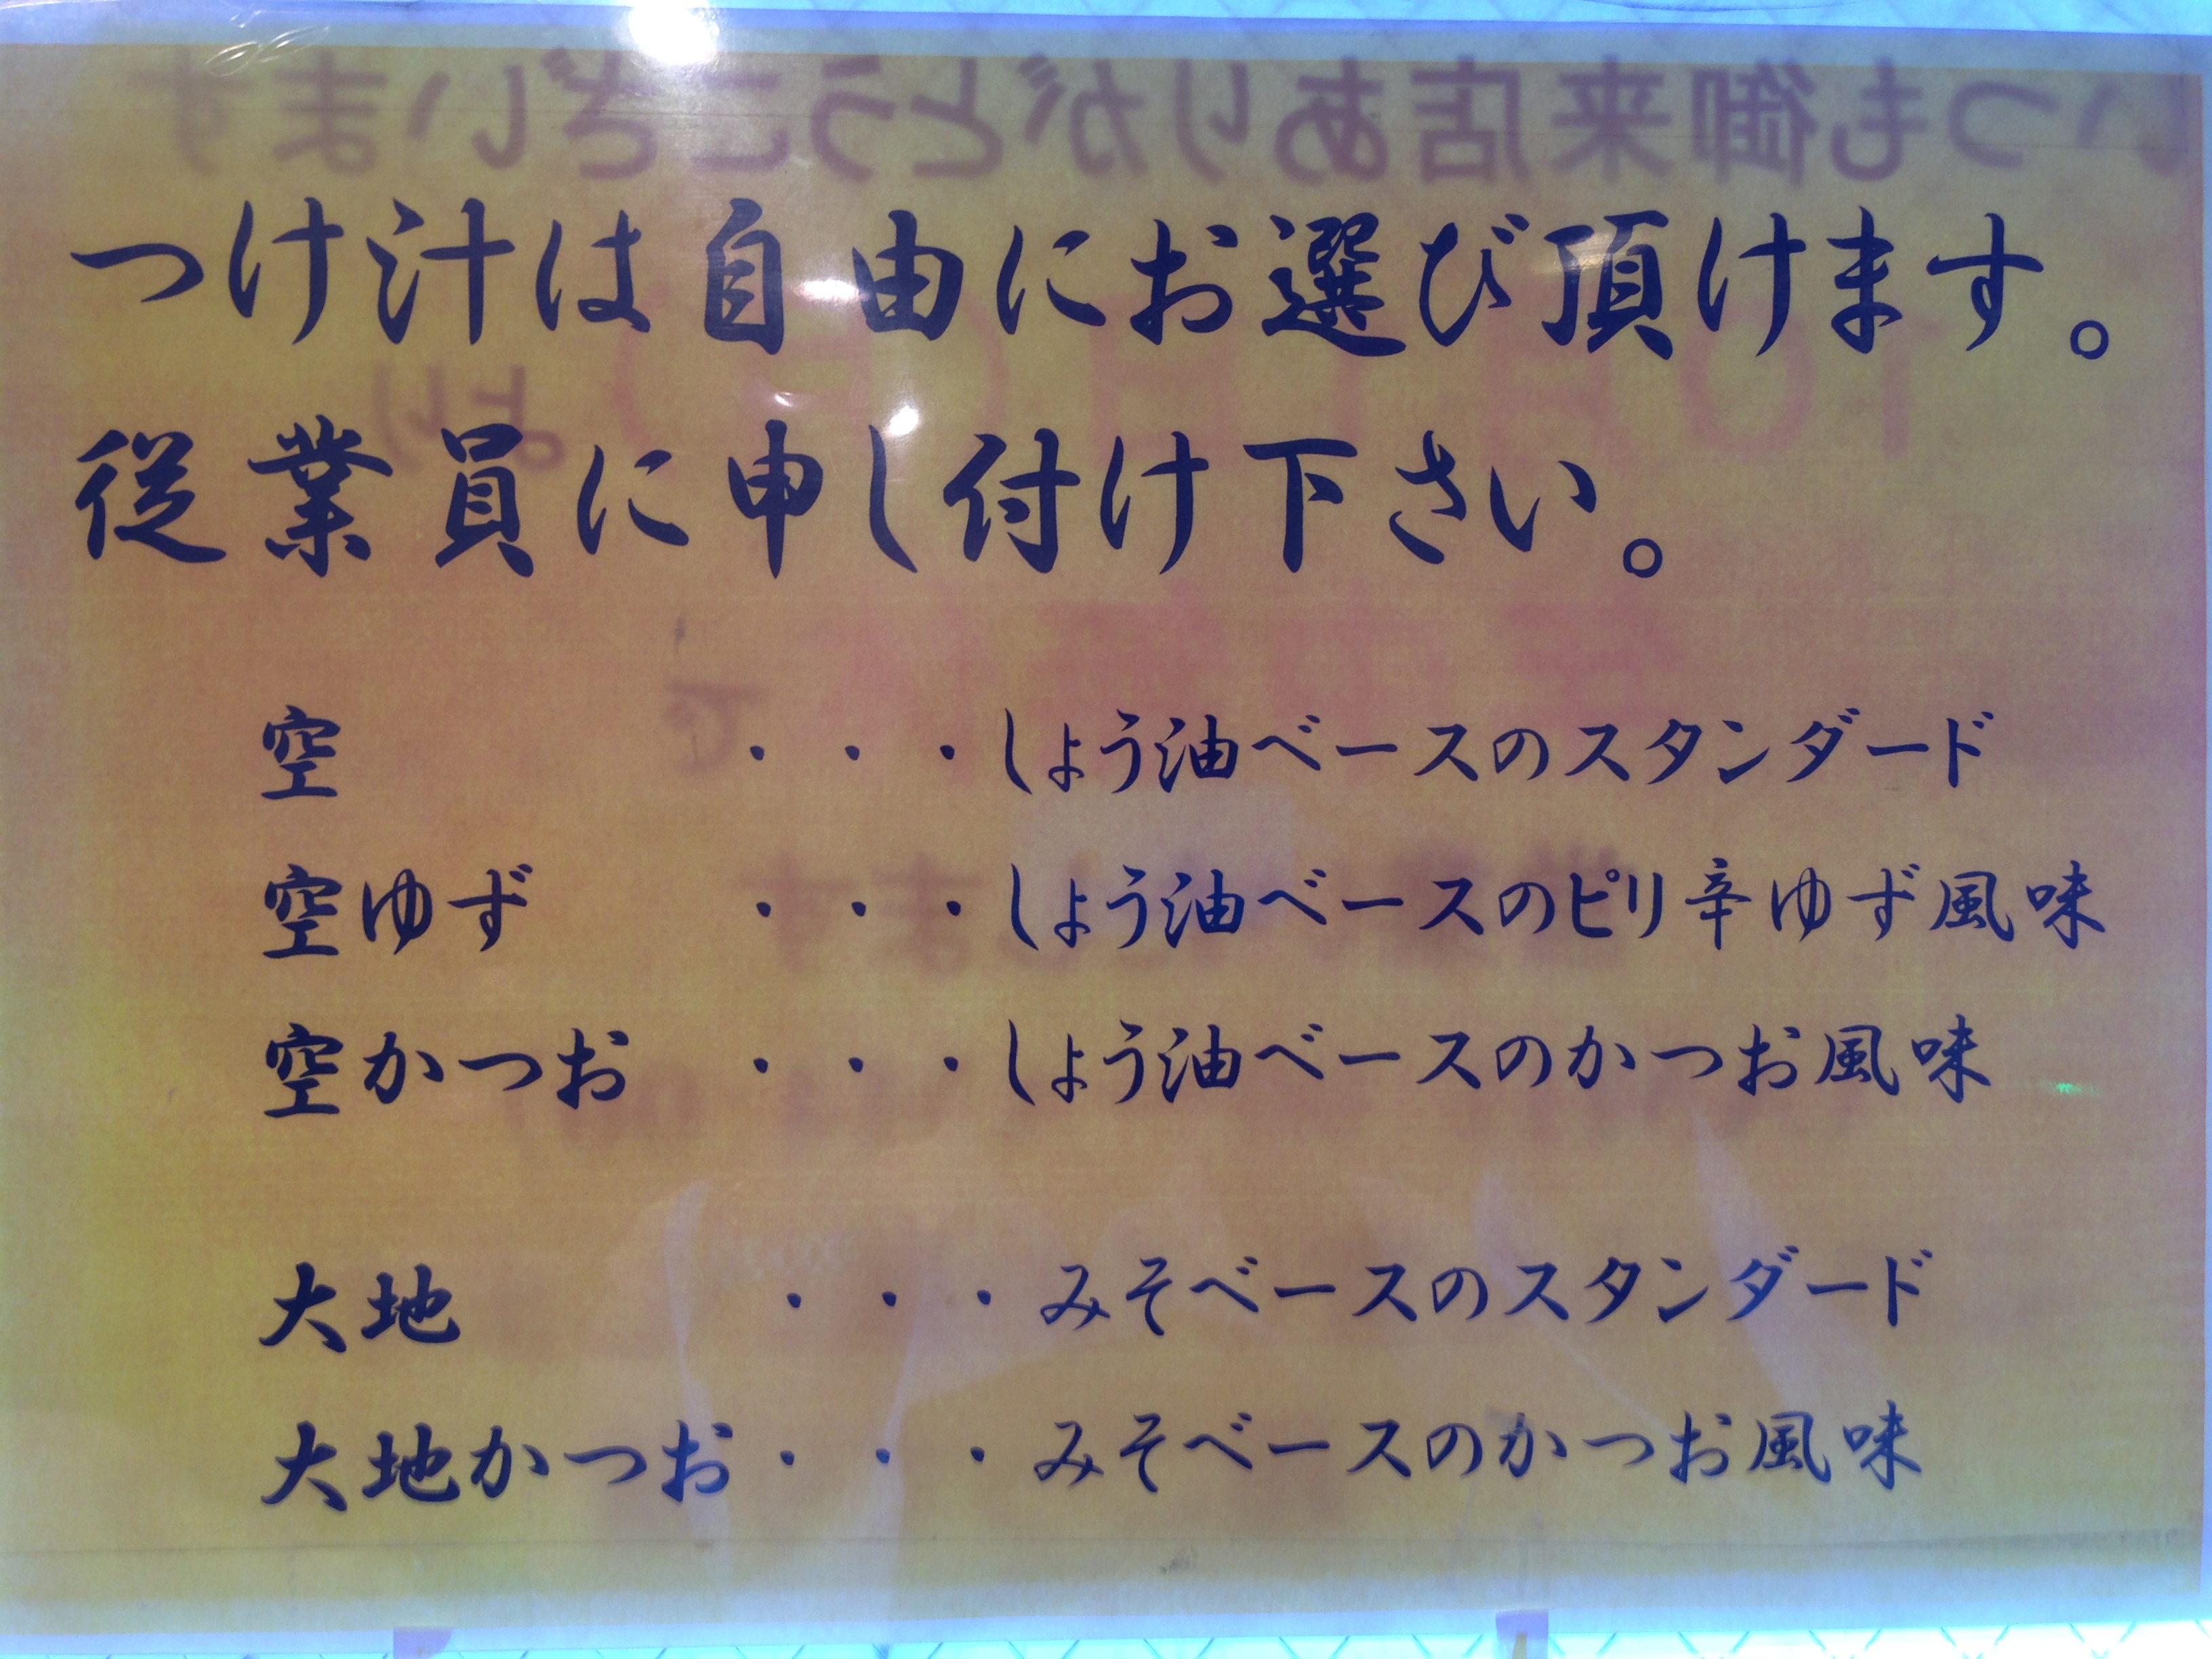 いつも御来店ありがとうございます
つけ汁は自由にお選び頂けます。
従業員に申し付け下さい。
空 ・・・しょう油ベースのスタンダード
空ゆず ・・・しょう油ベースのピリ辛ゆず風味
空かつお ・・・しょう油ベースのかつお風味
大地 ・・・みそベースのスタンダード
大地かつお・・・みそベースのかつお風味